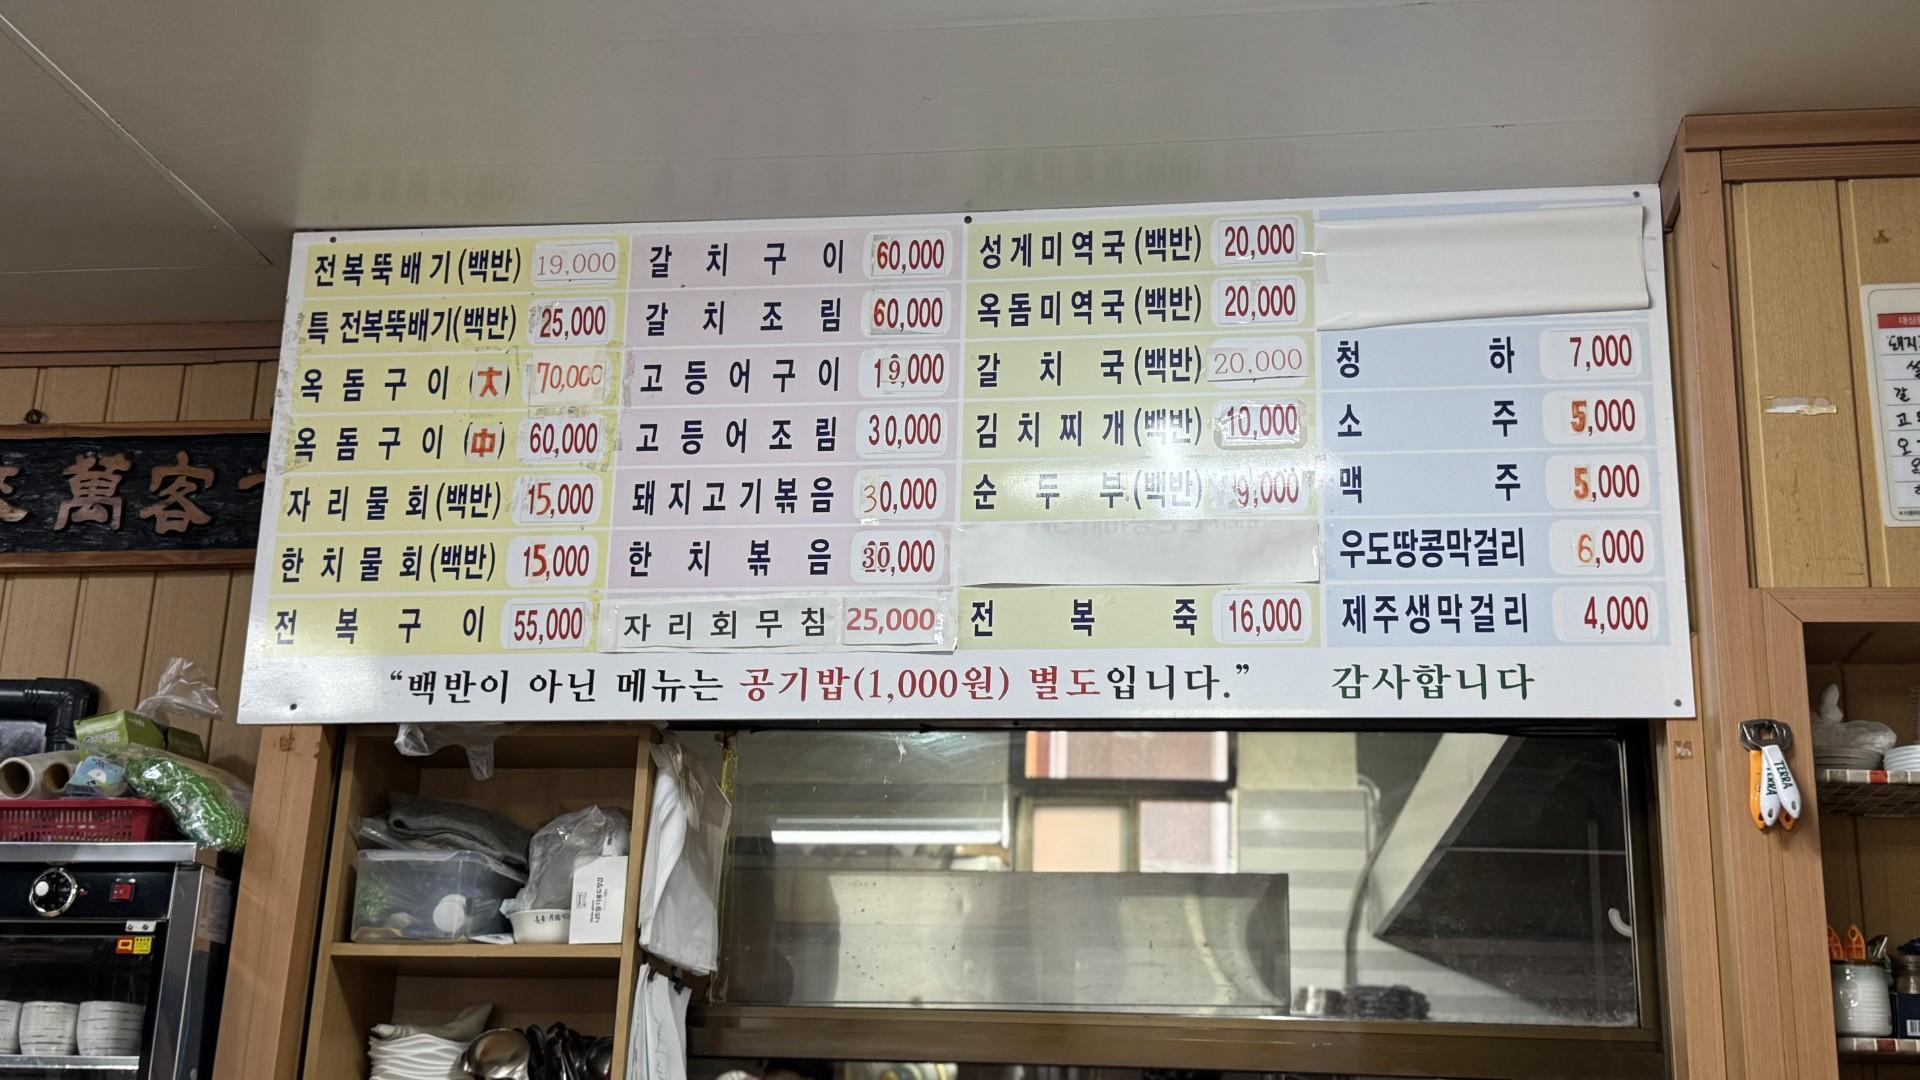 전복뚝배기(백반) 19,000
특 전복뚝배기(백반) 25,000
옥돔구이(大) 70,000
옥돔구이(中) 60,000
자리물회(백반) 15,000
한치물회(백반) 15,000
전복구이 55,000
갈치구이 60,000
갈치조림 60,000
고등어구이 19,000
고등어조림 30,000
돼지고기볶음 30,000
한치볶음 30,000
자리회무침 25,000
성게미역국(백반) 20,000
옥돔미역국(백반) 20,000
갈치국(백반) 20,000
김치찌개(백반) 10,000
순두부(백반) 9,000
전복죽 16,000
청하 7,000
소주 5,000
맥주 5,000
우도땅콩막걸리 6,000
제주생막걸리 4,000
“백반이 아닌 메뉴는 공기밥(1,000원) 별도입니다.” 감사합니다
萬客
TERRA
TERRA